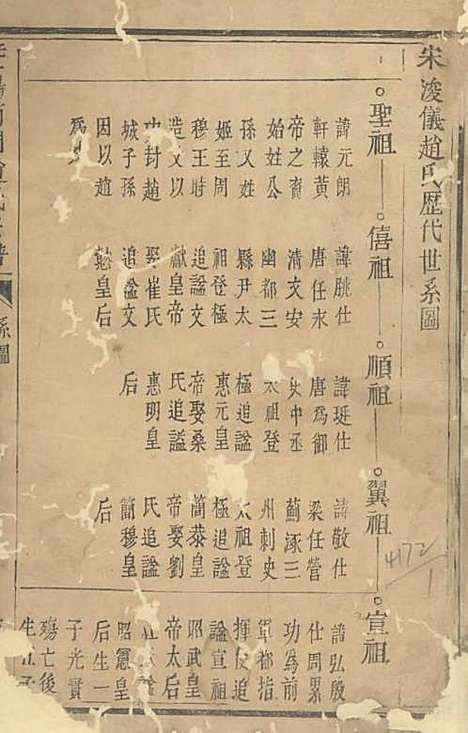 宋浚儀趙氏歷代世系圖
聖祖
諱元朗
軒轅黃
帝之裔
始姓公
孫又姓
姬至周
穆王時
造父以
功封趙
城子孫
因以趙
為
僖祖
諱朓仕
唐任永
清文安
幽都三
縣尹太
祖登極
追諡文
獻皇帝
娶崔氏
追諡文
懿皇后
順祖
諱珽仕
唐為御
史中丞
太祖登
極追諡
惠元皇
帝娶桑
氏追諡
惠明皇
后
翼祖
諱敬仕
梁任營
薊涿三
州刺史
太祖登
極追諡
簡恭皇
帝娶劉
氏追諡
簡穆皇
后
宣祖
諱弘殷
仕周累
功為前
軍都指
揮使追
諡宣祖
昭武皇
帝太后
諡
昭憲皇
后生一
子光實
殤亡後
生五子
系圖
4172
1